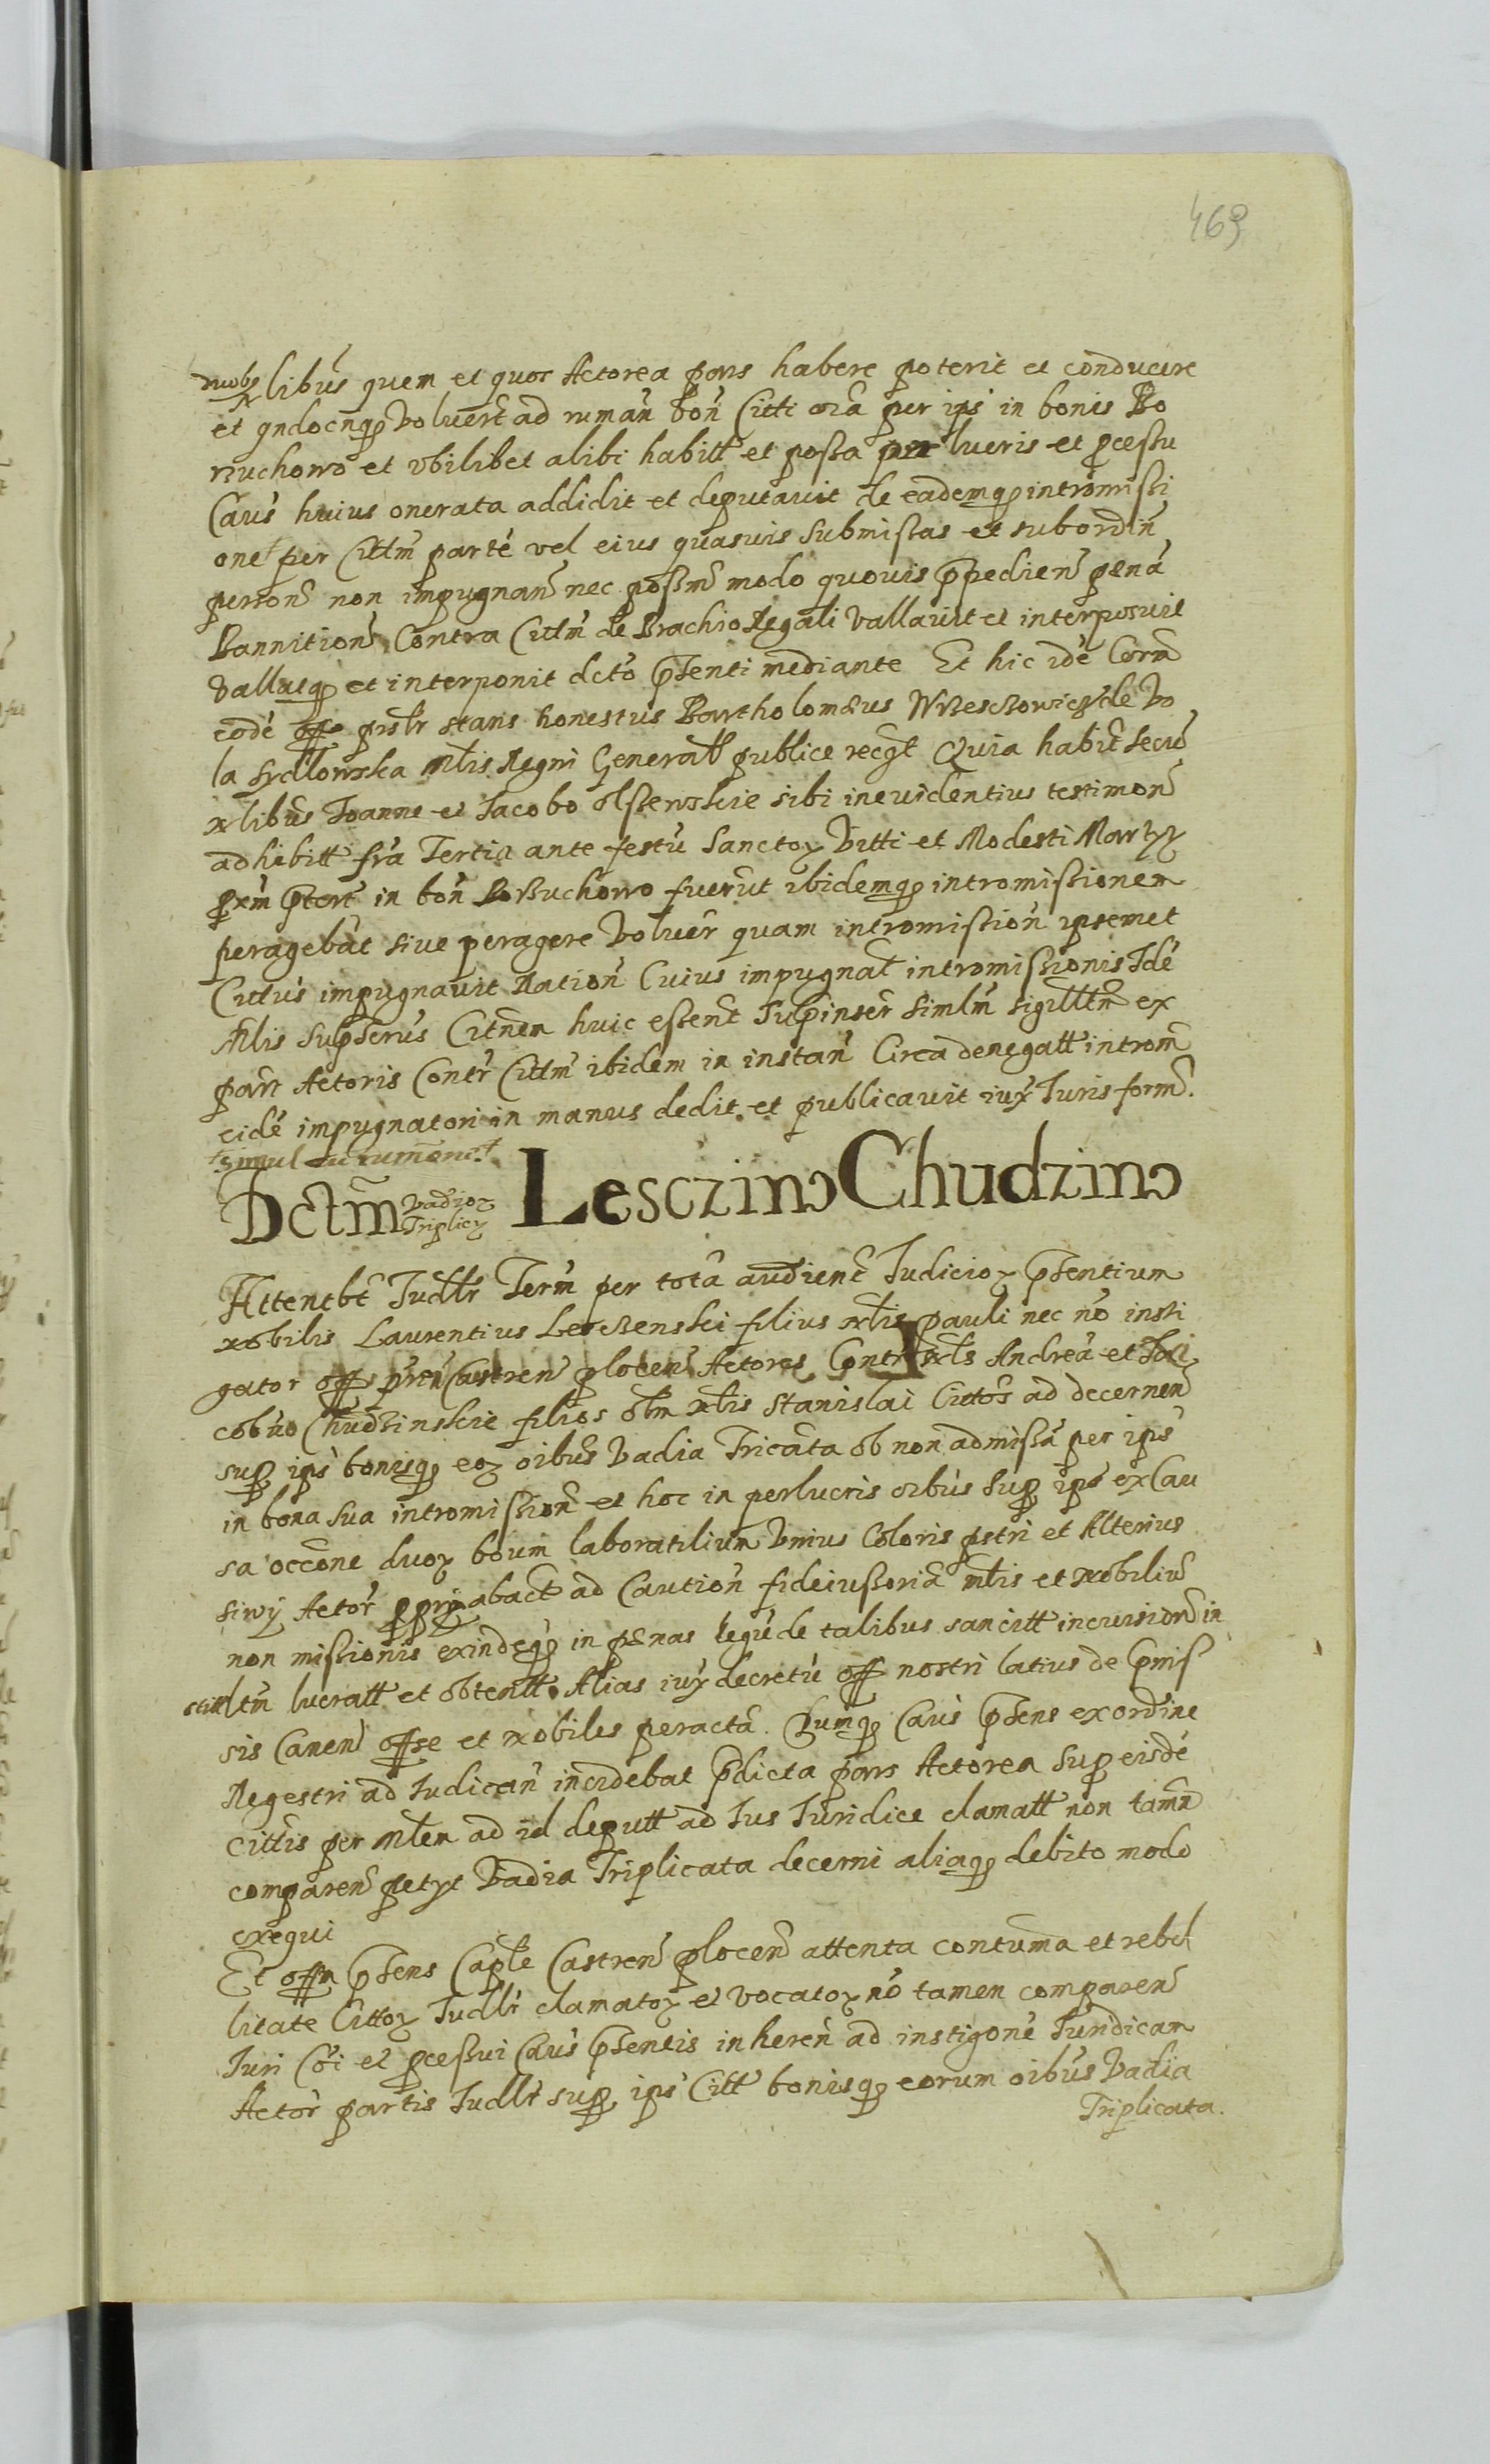 469
duobus
xlibus quem et quos Actorea pars habere poterit et conducere
et qndocnqz voluerit ad ruman bon Citti oia per ips in bonis Bo
rzuchowo et vbilibet alibi habitt et possa per lucris et pcessu
Caus huius onerata addidit et deputauit de eademqz intromissi
one † per Cittm parte vel eius quasuis submissas et subordin
person non impugnan nec possm modo quouis ppedien pena
Bannition Contra Cittm de Brachio Regali vallauit et interposuit
vallatqz et interponit dcto psenti mediante Et hic ide Coram
eode offo prslr stans honestus Bartholomeus de Vo
la Sydlowska Mlis Regni Generall publice recgt Quia habit secu
xlibus Joanne et Jacobo Olszewskie sibi in euidentius testimon
adhibitt fra Tertia ante festu Sanctor Vitti et Modesti Mar
pxm ptert in bon Borzuchowo fuerunt ibidemqz intromissionem
peragebat siue peragere voluer quam intromission ipsemet
Cittus impugnauit Ration Cuius impugnat intromissionis Ide
Mlis supscrus Citnem huic essent supinser simlm sigilltm ex
part Actoris Contr Cittm ibidem in instan Circa denegatt introm
eide impugnatori in manus dedit et publicauit iux Juris form.
† simul cu rumone †
Dctm Vadior Triplicr Lesczino Chudzino
Attentbt Judlr Term per tota audient Judicior psentium
xobilis Laurentius Lesczenski filius xlis pauli nec no insti
gator off pren Castren plocen Actores Contr xls Andrea et Ja
cobuo Chudzinskie filios olm xlis Stanislai Cittos ad decernen
sup ips bonisqz eor oibus Vadia Tricata ob non admissa per ips
in bona sua intromission et hoc in perlucris oibus sup ips ex Cau
sa occone duor boum laboratilium Vnius Coloris pstri et Alterius
siwy Actor ppry abact ad Caution fideiussoria mlis et xobiliu
non missionis exindeqz in penas legu de talibus sancitt incursion in
ltm lucratt et obtentt Alias iux decretu off nostri latius de pmis
sis Canen offse et xobiles peracta. Cumqz Caus psens ex ordine
Regestri ad Judican incidebat pdicta pars Actorea sup eisde
Cittis per Mlem ad id deputt ad Jus Juridice clamatt non tamn
comparen petyt Vadia Triplicata decerni aliaqz debito modo
exequi
Et offm psens Caple Castren plocen attenta contuma et rebel
litate Cittor Judlr clamator et vocator no tamen comparen
Juri Coi et pcessui Caus psentis inheren ad instigone Juridicam
Actor partis Judlr sup ips Citt bonisqz eorum oibus Vadia
Triplicata.